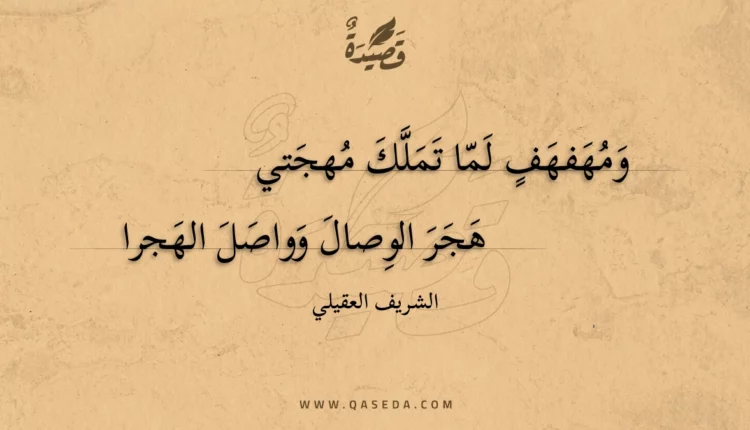 قَصِيْدَةٌ
وَمُهَفهَفٍ لَمّا تَمَلَّكَ مُهجَتي
هَجَرَ الوِصالَ وَواصَلَ الهَجرا
الشريف العقيلي
WWW.QASEDA.COM